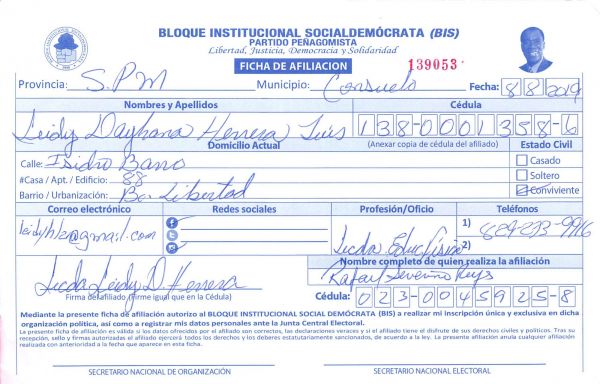 BLOQUE INSTITUCIONAL SOCIALDEMÓCRATA (BIS)
PARTIDO PEÑAGOMISTA
Libertad, Justicia, Democracia y Solidaridad
FICHA DE AFILIACION
139053
Provincia: S.P.M Municipio: Consuelo Fecha: 8/8/2019
Nombres y Apellidos Cédula
Leidy Dayhana Herrera 138-0001358-6
Domicilio Actual (Anexar copia de cédula del afiliado)
Calle: Isidro Barro Estado Civil
#Casa / Apt. / Edificio: 88 Casado
Barrio / Urbanización: Bo. Libertad Soltero
Conviviente
Correo electrónico Redes sociales Profesión/Oficio Teléfonos
@gmail.com 1) 829-273-9916
Licda Educ. Física 2)
Nombre completo de quien realiza la afiliación
Licda Leidy D. Herrera Rafael Severino Reyes
Firma del afiliado (Firme igual que en la Cédula) Cédula: 023-0045925-8
Mediante la presente ficha de afiliación autorizo al BLOQUE INSTITUCIONAL SOCIAL DEMÓCRATA (BIS) a realizar mi inscripción única y exclusiva en dicha
organización política, así como a registrar mis datos personales ante la Junta Central Electoral.
La presente ficha de afiliación es válida si los datos ofrecidos por el afiliado son correctos, las declaraciones veraces y si el afiliado tiene el disfrute de sus derechos civiles y políticos. Tras su
recepción, sello y firmas autorizadas el afiliado ejercerá todos los derechos y los deberes estatutariamente sancionados, de acuerdo a la ley. La presente afiliación anula cualquier afiliación
realizada con anterioridad a la fecha que aparece en esta ficha.
SECRETARIO NACIONAL DE ORGANIZACIÓN SECRETARIO NACIONAL ELECTORAL